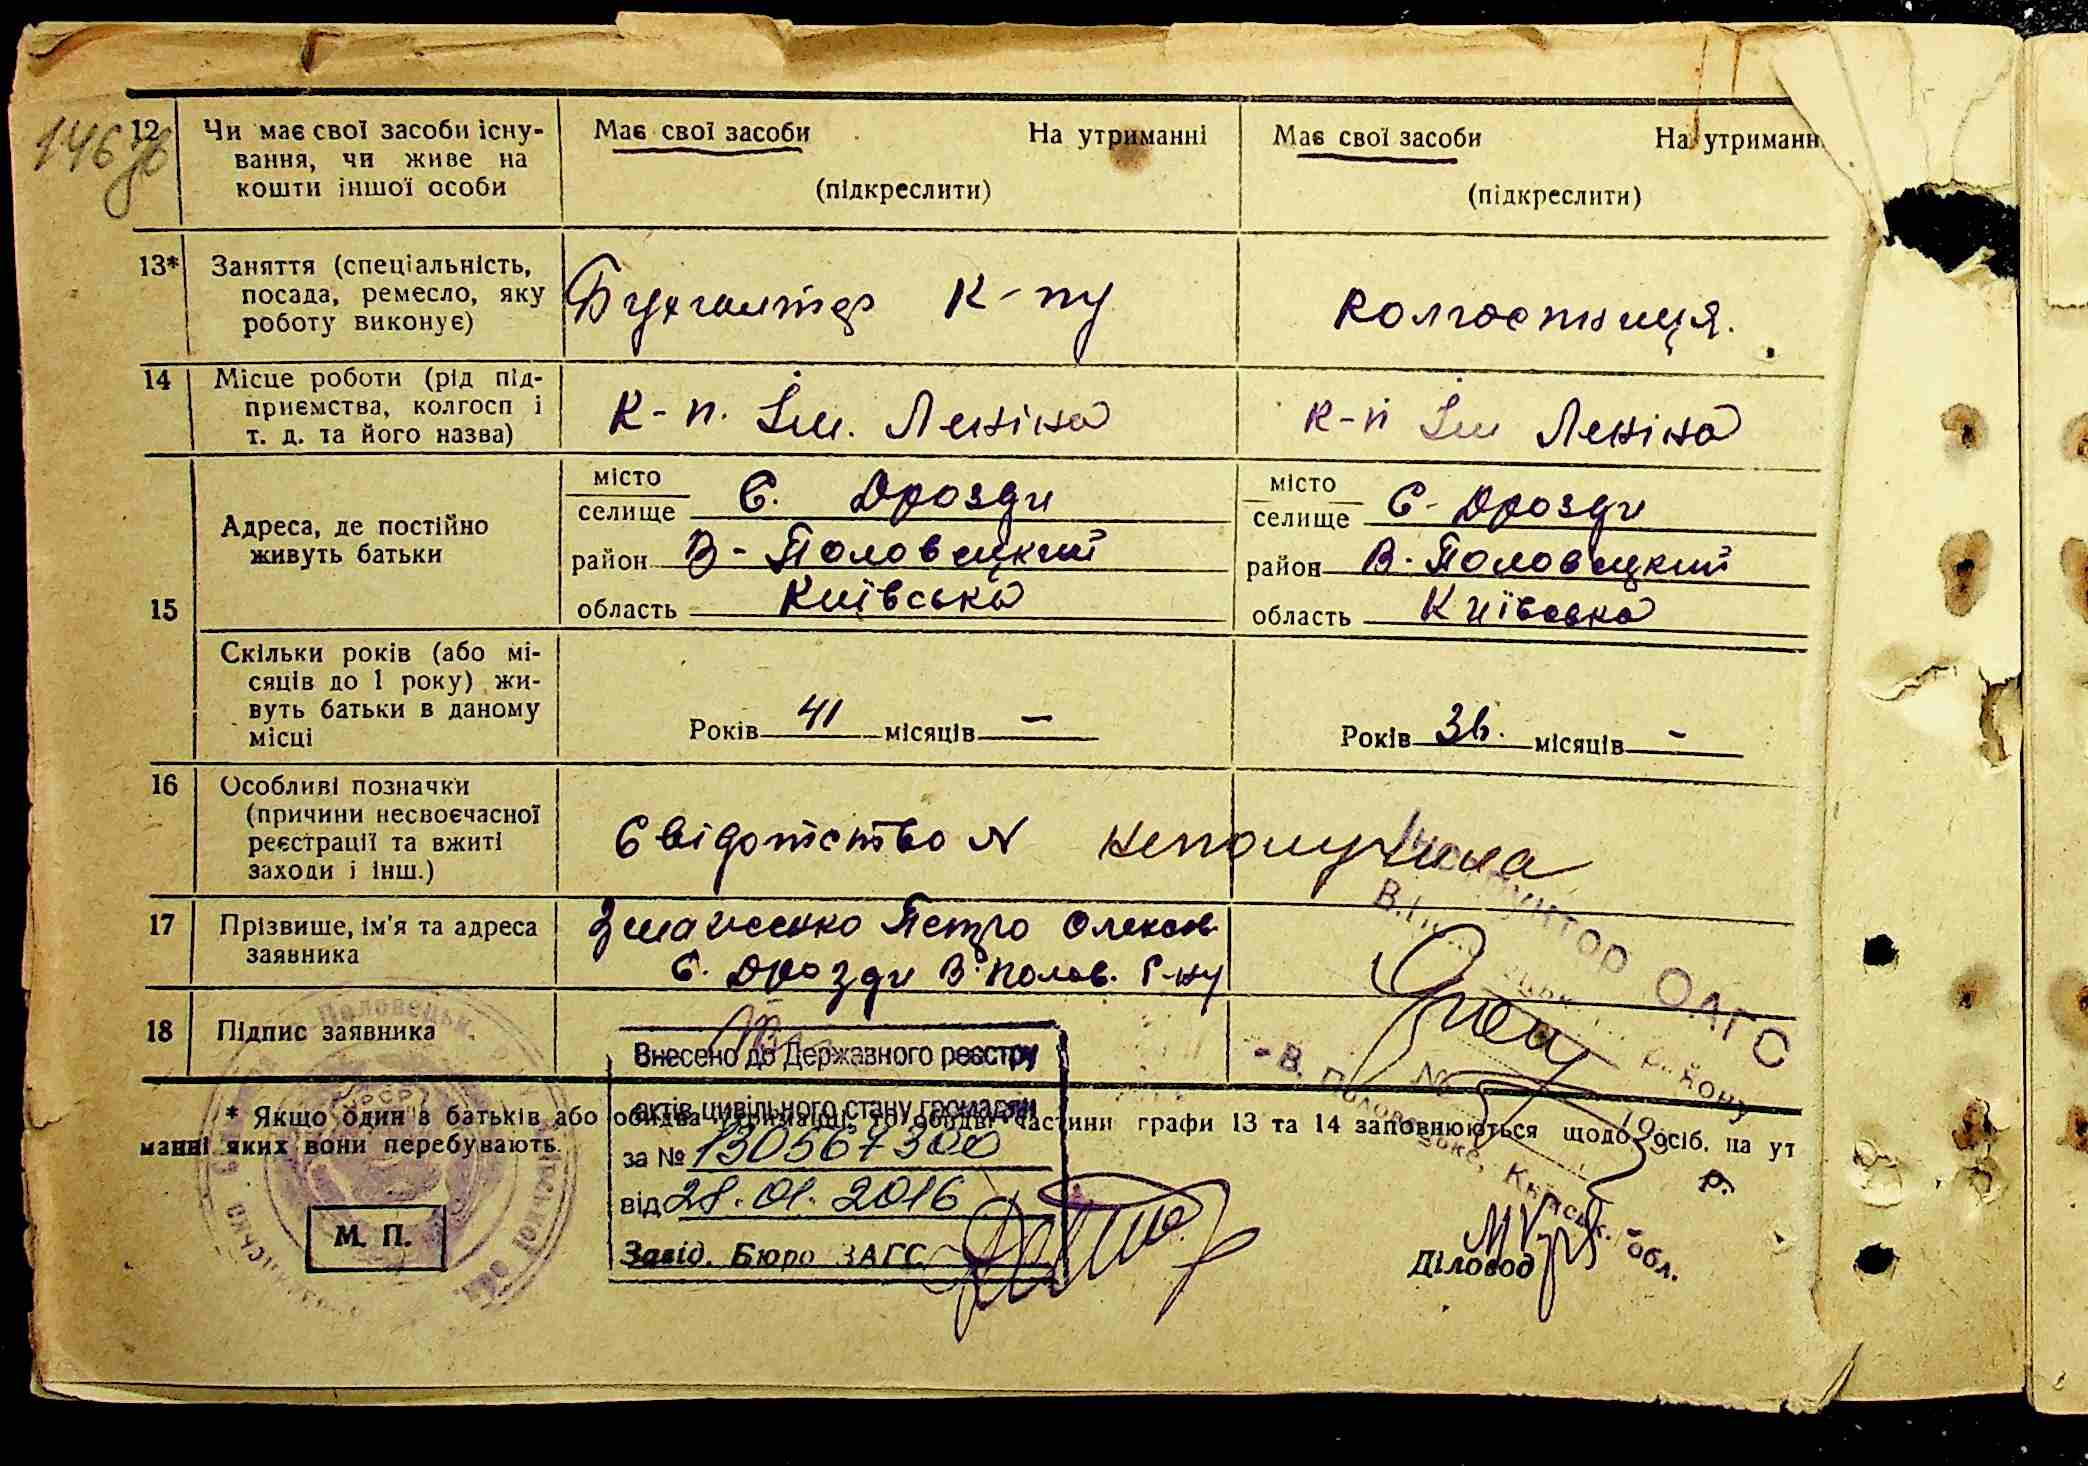 146 зв
12 Чи має свої засоби існу- Має свої засоби На утриманні Має свої засоби На утриманн
вання, чи живе на
кошти іншої особи (підкреслити) (підкреслити)
13* Заняття (спеціальність,
посада, ремесло, яку Бухгалтер к-пу колгоспниця.
роботу виконує)
14 Місце роботи (рід під-
приємства, колгосп і к-п. Ім. Леніна к-п Ім Леніна
т. д. та його назва)
15 Адреса, де постійно
живуть батьки
місто
селище С. Дрозди
район В-Половецкий
область Київська
місто
селище С- Дрозди
район В. Половецкий
область Київська
Скільки років (або мі-
сяців до 1 року) жи-
вуть батьки в даному
місці
Років 41 місяців –
Років 36. місяців –
16 Особливі позначки
(причини несвоєчасної
реєстрації та вжиті
заходи і інш.)
Свідотство N неполучила
17 Прізвище, ім'я та адреса
заявника
Петро Олексов
С. Дрозди В. Полов. р-ну
18 Підпис заявника
Інструктор ОАГС
району
В. Половецьке, Київськ. обл.
№
19 р.
Половецьк.
УРСР
Внесено до Державного реєстру
актів цивільного стану громадян
за №
від 28.01.2016
Завід. Бюро ЗАГС
* Якщо один з батьків або обидва утриманці, то обидві частини графи 13 та 14 заповнюються щодо осіб, на ут
манні яких вони перебувають.
М. П.
Діловод